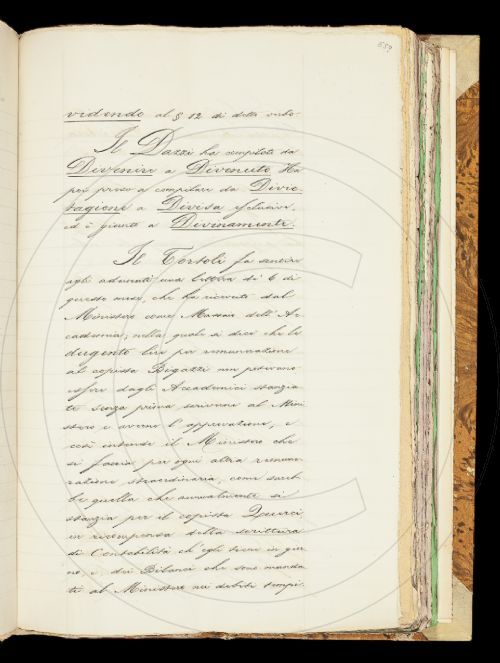 657
videndo al § 12 di detto verbo.
Il Dazzi ha compilato da
Divenire a Divenuto. Ha
poi preso a compilare da Divie-
tagione a Divisa esclusive,
ed è giunto a Divinamente.
Il Tortoli fa sentire
agli adunati una lettera di 6 di
questo mese, che ha ricevuto dal
Ministero come Massaio dell'Ac-
cademia; nella quale si dice che le
dugento lire per remunerazione
al copista Bigazzi non potevano
essere dagli Accademici stanzia
te senza prima scriverne al Mini
stero e averne l'approvazione, e
così intende il Ministero che
si faccia per ogni altra remune-
razione straordinaria, come sareb-
be quella che annualmente si
stanzia per il copista Querci
in ricompensa della scrittura
di Contabilità ch'egli tiene in gior
no, e dei Bilanci che sono manda
ti al Ministero nei debiti tempi.